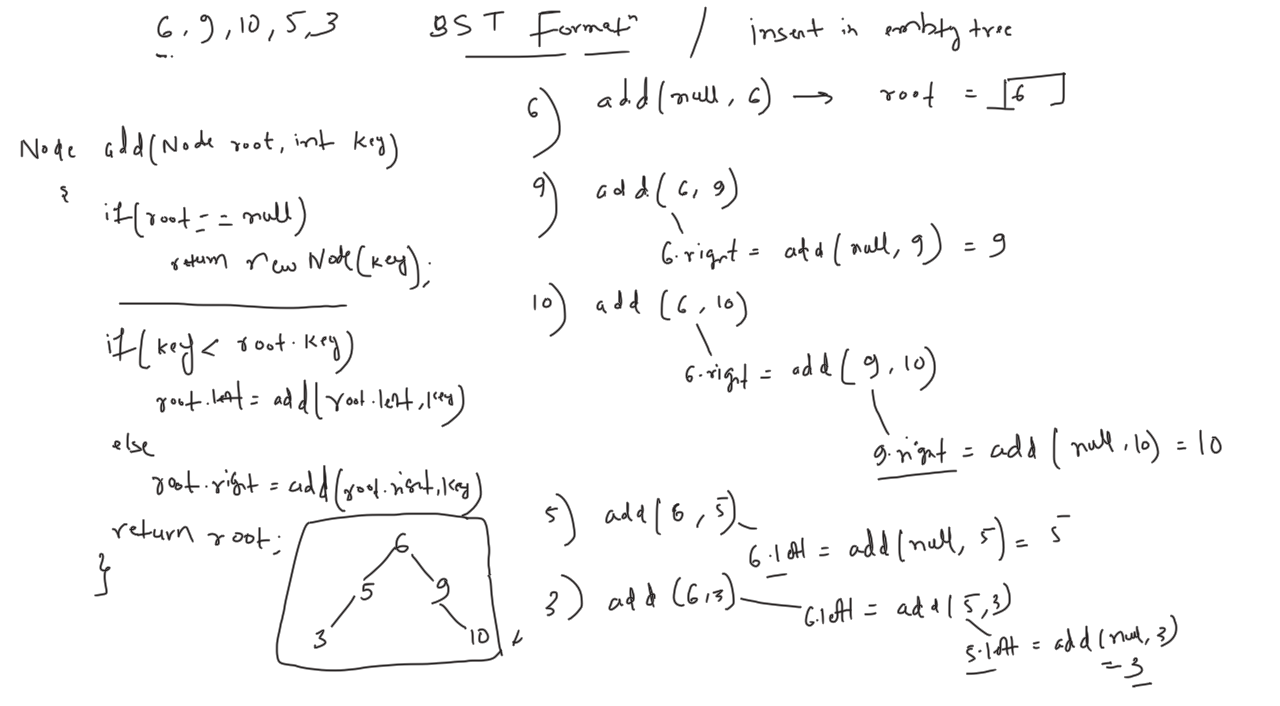 6, 9, 10, 5, 3 BST Formatⁿ / insert in embty tree
Node add(Node root, int key)
{
if(root == null)
return new Node(key);
if(key < root.key)
root.left = add(root.left, key)
else
root.right = add(root.right, key)
return root;
}
6) add(null, 6) → root = 6
9) add(6, 9)
6.right = add(null, 9) = 9
10) add (6, 10)
6.right = add(9, 10)
9.right = add(null, 10) = 10
5) add(6, 5)
6.left = add(null, 5) = 5
3) add(6,3) 6.left = add(5,3)
5.left = add(null, 3)
= 3
6
5 9
3 10